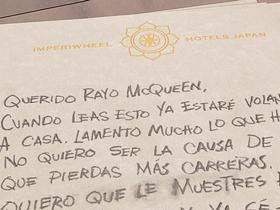 IMPERIWHEEL HOTELS JAPAN
QUERIDO RAYO McQUEEN,
CUANDO LEAS ESTO YA ESTARÉ
A CASA. LAMENTO MUCHO LO QUE
NO QUIERO SER LA CAUSA DE
QUE PIERDAS MÁS CARRERAS.
QUIERO QUE LE MUESTRES